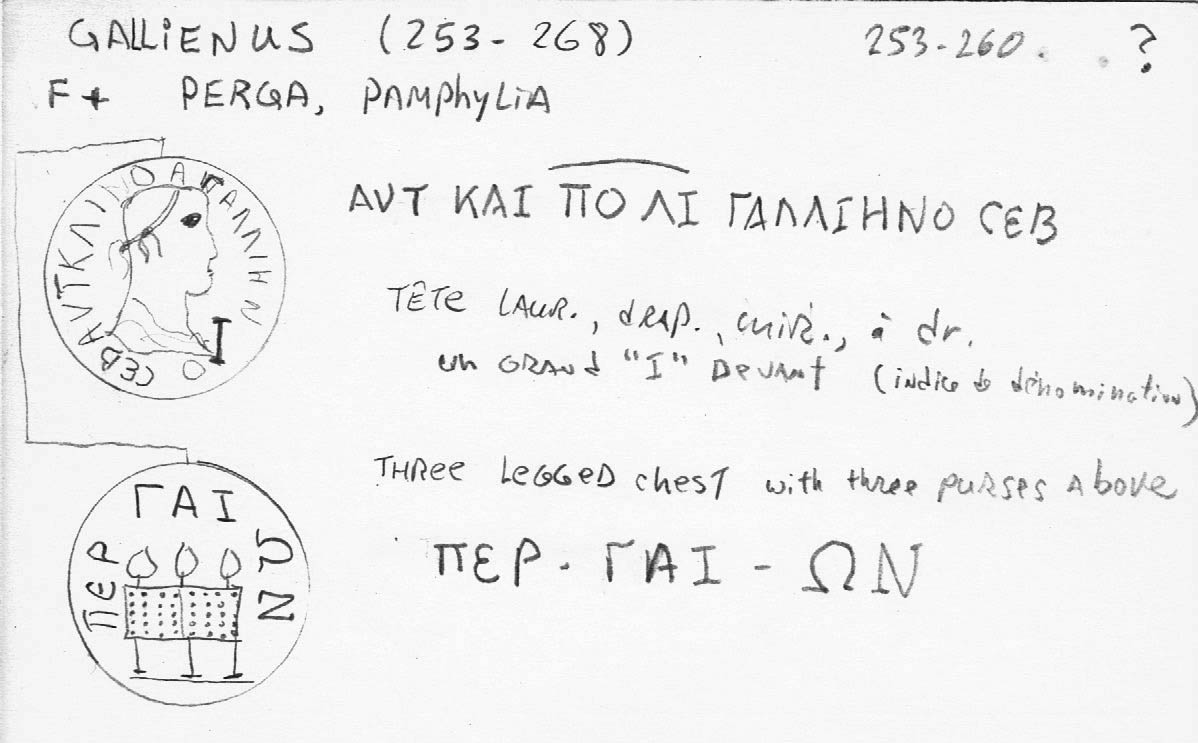 GALLIENUS (253-268) 253-260. . ?
F+ PERGA, PAMPHYLIA
ΑΥΤ ΚΑΙ ΠΟ ΛΙ ΓΑΛΛΙΗΝΟ CEB
TÊTE LAUR., drap., cuir., à dr.
un GRAND "I" DEVANT (indice de dénomination)
I
THREE LEGGED chest with three purses Above
ΓΑΙ
ΠΕΡ
ΩΝ
ΠΕΡ - ΓΑΙ - ΩΝ